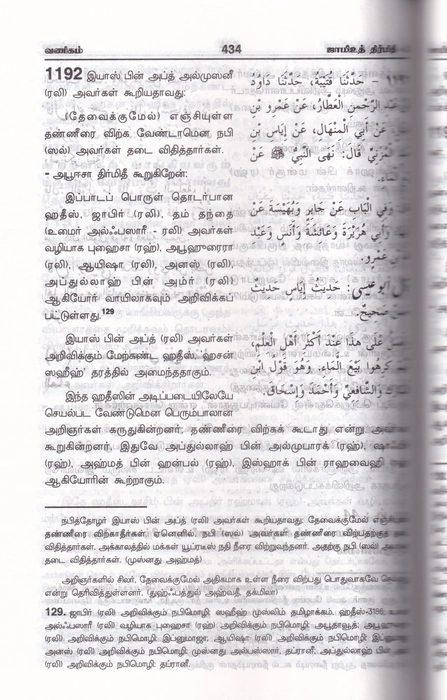 வணிகம்
434
ஜாமிஉத் திர்மிதீ
1192 இயாஸ் பின் அப்த் அல்முஸனீ
(ரலி) அவர்கள் கூறியதாவது:
(தேவைக்குமேல்) எஞ்சியுள்ள
தண்ணீரை விற்க வேண்டாமென நபி
(ஸல்) அவர்கள் தடை விதித்தார்கள்.
- அபூஈசா திர்மிதீ கூறுகிறேன்:
இப்பாடப் பொருள் தொடர்பான
ஹதீஸ், ஜாபிர் (ரலி), தம் தந்தை
(உமைர் அல்ஃபஸாரீ - ரலி) அவர்கள்
வழியாக புஹைசா (ரஹ்), அபூஹுரைரா
(ரலி), ஆயிஷா (ரலி), அனஸ் (ரலி),
அப்துல்லாஹ் பின் அம்ர் (ரலி)
ஆகியோர் வாயிலாகவும் அறிவிக்கப்
பட்டுள்ளது.129
இயாஸ் பின் அப்த் (ரலி) அவர்கள்
அறிவிக்கும் மேற்கண்ட ஹதீஸ், 'ஹசன்
ஸஹீஹ்' தரத்தில் அமைந்ததாகும்.
இந்த ஹதீஸின் அடிப்படையிலேயே
செயல்பட வேண்டுமென பெரும்பாலான
அறிஞர்கள் கருதுகின்றனர். தண்ணீரை விற்கக் கூடாது என்று
கூறுகின்றனர். இதுவே அப்துல்லாஹ் பின் அல்முபாரக் (ரஹ்),
(ரஹ்), அஹ்மத் பின் ஹன்பல் (ரஹ்), இஸ்ஹாக் பின் ராஹவைஹி
ஆகியோரின் கூற்றாகும்.
حَدَّثَنَا قُتَيْبَةُ، حَدَّثَنَا دَاوُدُ
عَبْدِ الرَّحْمَنِ الْعَطَّارُ، عَنْ عَمْرِو بْنِ
عَنْ أَبِي الْمِنْهَالِ، عَنْ إِيَاسِ بْنِ
الْمُزَنِيِّ قَالَ: نَهَى النَّبِيُّ ﷺ عَنْ
الْمَاءِ.
وَفِي الْبَابِ عَنْ جَابِرٍ وَبُهَيْسَةَ عَنْ
وَأَبِي هُرَيْرَةَ وَعَائِشَةَ وَأَنَسٍ وَعَبْدِ
عَمْرٍو.
أَبُو عِيسَى: حَدِيثُ إِيَاسٍ حَدِيثٌ
صَحِيحٌ.
عَلَى هَذَا عِنْدَ أَكْثَرِ أَهْلِ الْعِلْمِ،
كَرِهُوا بَيْعَ الْمَاءِ. وَهُوَ قَوْلُ ابْنِ
وَالشَّافِعِيِّ وَأَحْمَدَ وَإِسْحَاقَ
நபித்தோழர் இயாஸ் பின் அப்த் (ரலி) அவர்கள் கூறியதாவது: தேவைக்குமேல்
தண்ணீரை விற்காதீர்கள். ஏனெனில், நபி (ஸல்) அவர்கள் தண்ணீரை விற்பதற்குத்
விதித்தார்கள். அக்காலத்தில் மக்கள் யூப்ரடீஸ் நதி நீரை விற்றுவந்தனர். அதற்கு நபி (ஸல்)
தடை விதித்தார்கள். (முஸ்னது அஹ்மத்)
அறிஞர்களில் சிலர், தேவைக்குமேல் அதிகமாக உள்ள நீரை விற்பது பொதுவாகவே
என்று தெரிவித்துள்ளனர். (துஹ்ஃபத்துல் அஹ்வதீ, தக்மிலா)
129. ஜாபிர் (ரலி) அறிவிக்கும் நபிமொழி: ஸஹீஹ் முஸ்லிம் தமிழாக்கம், ஹதீஸ்-3186;
அல்ஃபஸாரீ (ரலி) வழியாக புஹைசா (ரஹ்) அறிவிக்கும் நபிமொழி: அபூதாவூத்;
(ரலி) அறிவிக்கும் நபிமொழி: இப்னுமாஜா; ஆயிஷா (ரலி) அறிவிக்கும் நபிமொழி:
அனஸ் (ரலி) அறிவிக்கும் நபிமொழி: முஸ்னது அல்பஸ்ஸார், தப்ரானீ; அப்துல்லாஹ் பின்
(ரலி) அறிவிக்கும் நபிமொழி: தப்ரானீ.